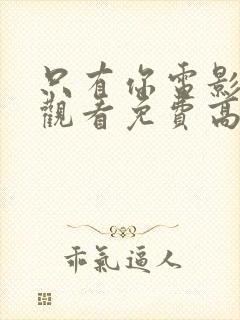 只有你電影
觀看免費高
乖氣逼人